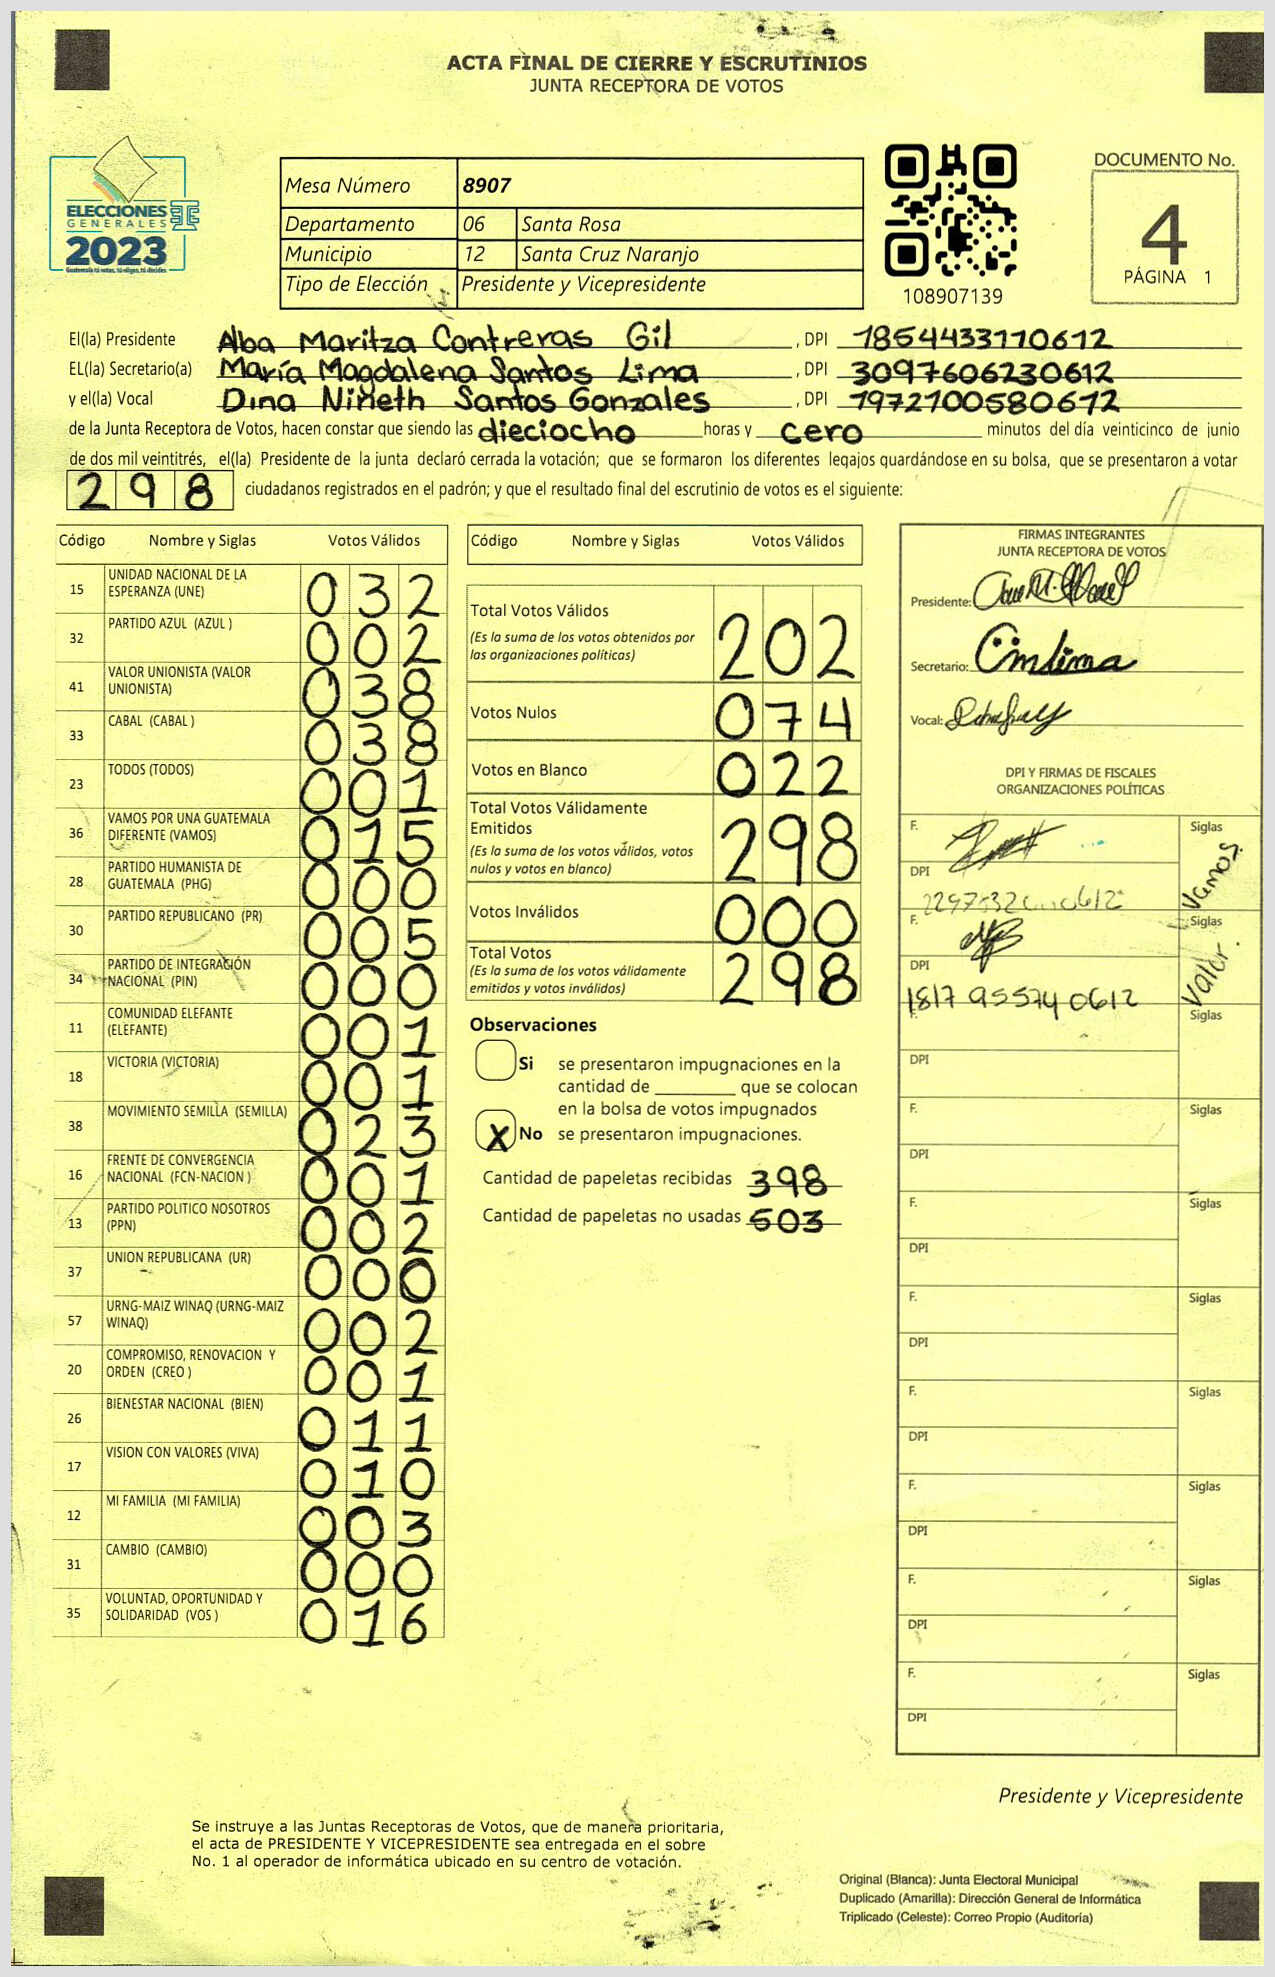 ACTA FINAL DE CIERRE Y ESCRUTINIOS
JUNTA RECEPTORA DE VOTOS
ELECCIONES
GENERALES
2023
Guatemala tú votas, tú eliges, tú decides
Mesa Número 8907
Departamento 06 Santa Rosa
Municipio 12 Santa Cruz Naranjo
Tipo de Elección Presidente y Vicepresidente
108907139
DOCUMENTO No.
4
PÁGINA 1
El(la) Presidente Alba Maritza Contreras Gil , DPI 1854433110612
EL(la) Secretario(a) María Magdalena Santos Lima , DPI 3097606230612
y el(la) Vocal Dina Nineth Santos Gonzales , DPI 1972100580612
de la Junta Receptora de Votos, hacen constar que siendo las dieciocho horas y cero minutos del día veinticinco de junio
de dos mil veintitrés, el(la) Presidente de la junta declaró cerrada la votación; que se formaron los diferentes legajos guardándose en su bolsa, que se presentaron a votar
298 ciudadanos registrados en el padrón; y que el resultado final del escrutinio de votos es el siguiente:
Código Nombre y Siglas Votos Válidos
15 UNIDAD NACIONAL DE LA ESPERANZA (UNE) 032
32 PARTIDO AZUL (AZUL ) 002
41 VALOR UNIONISTA (VALOR UNIONISTA) 038
33 CABAL (CABAL ) 038
23 TODOS (TODOS) 001
36 VAMOS POR UNA GUATEMALA DIFERENTE (VAMOS) 015
28 PARTIDO HUMANISTA DE GUATEMALA (PHG) 000
30 PARTIDO REPUBLICANO (PR) 005
34 PARTIDO DE INTEGRACIÓN NACIONAL (PIN) 000
11 COMUNIDAD ELEFANTE (ELEFANTE) 001
18 VICTORIA (VICTORIA) 001
38 MOVIMIENTO SEMILLA (SEMILLA) 023
16 FRENTE DE CONVERGENCIA NACIONAL (FCN-NACION ) 001
13 PARTIDO POLITICO NOSOTROS (PPN) 002
37 UNION REPUBLICANA (UR) 000
57 URNG-MAIZ WINAQ (URNG-MAIZ WINAQ) 002
20 COMPROMISO, RENOVACION Y ORDEN (CREO ) 001
26 BIENESTAR NACIONAL (BIEN) 011
17 VISION CON VALORES (VIVA) 010
12 MI FAMILIA (MI FAMILIA) 003
31 CAMBIO (CAMBIO) 000
35 VOLUNTAD, OPORTUNIDAD Y SOLIDARIDAD (VOS ) 016
Código Nombre y Siglas Votos Válidos
Total Votos Válidos 202
(Es la suma de los votos obtenidos por
las organizaciones políticas)
Votos Nulos 074
Votos en Blanco 022
Total Votos Válidamente
Emitidos 298
(Es la suma de los votos válidos, votos
nulos y votos en blanco)
Votos Inválidos 000
Total Votos 298
(Es la suma de los votos válidamente
emitidos y votos inválidos)
Observaciones
Si se presentaron impugnaciones en la
cantidad de ________ que se colocan
en la bolsa de votos impugnados
X No se presentaron impugnaciones.
Cantidad de papeletas recibidas 398
Cantidad de papeletas no usadas 503
FIRMAS INTEGRANTES
JUNTA RECEPTORA DE VOTOS
Presidente:
Secretario:
Vocal:
DPI Y FIRMAS DE FISCALES
ORGANIZACIONES POLÍTICAS
F. Siglas Vamos
DPI
F. Siglas Valor.
DPI 1817 95574 0612
F. Siglas
DPI
F. Siglas
DPI
F. Siglas
DPI
F. Siglas
DPI
F. Siglas
DPI
F. Siglas
DPI
F. Siglas
DPI
F. Siglas
DPI
Presidente y Vicepresidente
Se instruye a las Juntas Receptoras de Votos, que de manera prioritaria,
el acta de PRESIDENTE Y VICEPRESIDENTE sea entregada en el sobre
No. 1 al operador de informática ubicado en su centro de votación.
Original (Blanca): Junta Electoral Municipal
Duplicado (Amarilla): Dirección General de Informática
Triplicado (Celeste): Correo Propio (Auditoría)